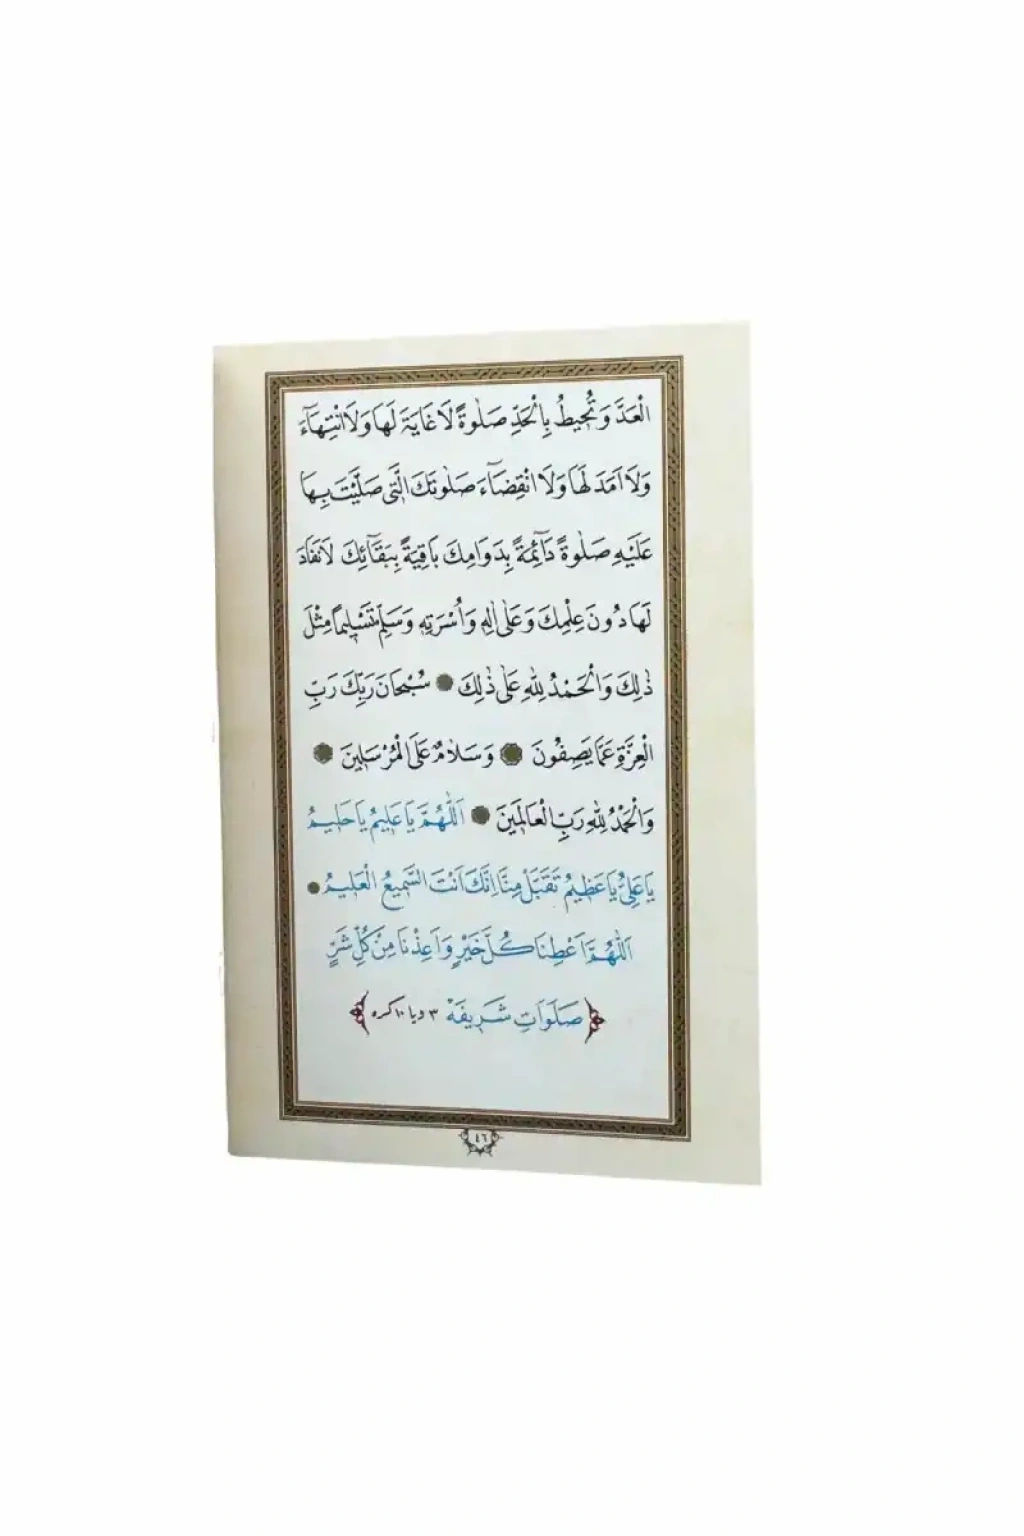 الْعَدَّ وَتُحِيطُ بِالْحَدِّ صَلٰوةً لَا غَايَةَ لَهَا وَلَا انْتِهَٓاءَ
وَلَا اَمَدَ لَهَا وَلَا انْقِضَٓاءَ صَلٰوتَكَ الَّتٖى صَلَّيْتَ بِهَا
عَلَيْهِ صَلٰوةً دَٓائِمَةً بِدَوَامِكَ بَاقِيَةً بِبَقَٓائِكَ لَا نَفَادَ
لَهَا دُونَ عِلْمِكَ وَعَلٰى اٰلِهٖ وَاُسْرَتِهٖ وَسَلِّمْ تَسْلٖيمًا مِثْلَ
ذٰلِكَ وَالْحَمْدُ لِلّٰهِ عَلٰى ذٰلِكَ ۞ سُبْحَانَ رَبِّكَ رَبِّ
الْعِزَّةِ عَمَّا يَصِفُونَ ۞ وَسَلَامٌ عَلَى الْمُرْسَلٖينَ ۞
وَالْحَمْدُ لِلّٰهِ رَبِّ الْعَالَمٖينَ ۞ اَللّٰهُمَّ يَا عَلٖيمُ يَا حَلٖيمُ
يَا عَلِىُّ يَا عَظٖيمُ تَقَبَّلْ مِنَّا اِنَّكَ اَنْتَ السَّمٖيعُ الْعَلٖيمُ ۞
اَللّٰهُمَّ اَعْطِنَا كُلَّ خَيْرٍ وَاَعِذْنَا مِنْ كُلِّ شَرٍّ
صَلَوَاتِ شَرٖيفَهْ ٣ ويا ١٠ كره
٤٦